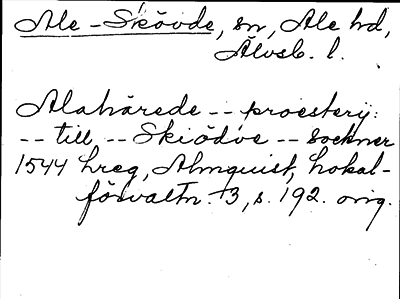 Ale-Skövde, sn, Ale hd,
Älvsb. l.
Alahärede -- proesterij:
-- till -- Skiödve -- sockner
1544 hreg, Almquist, Lokal-
förvaltn. 3, s. 192. orig.